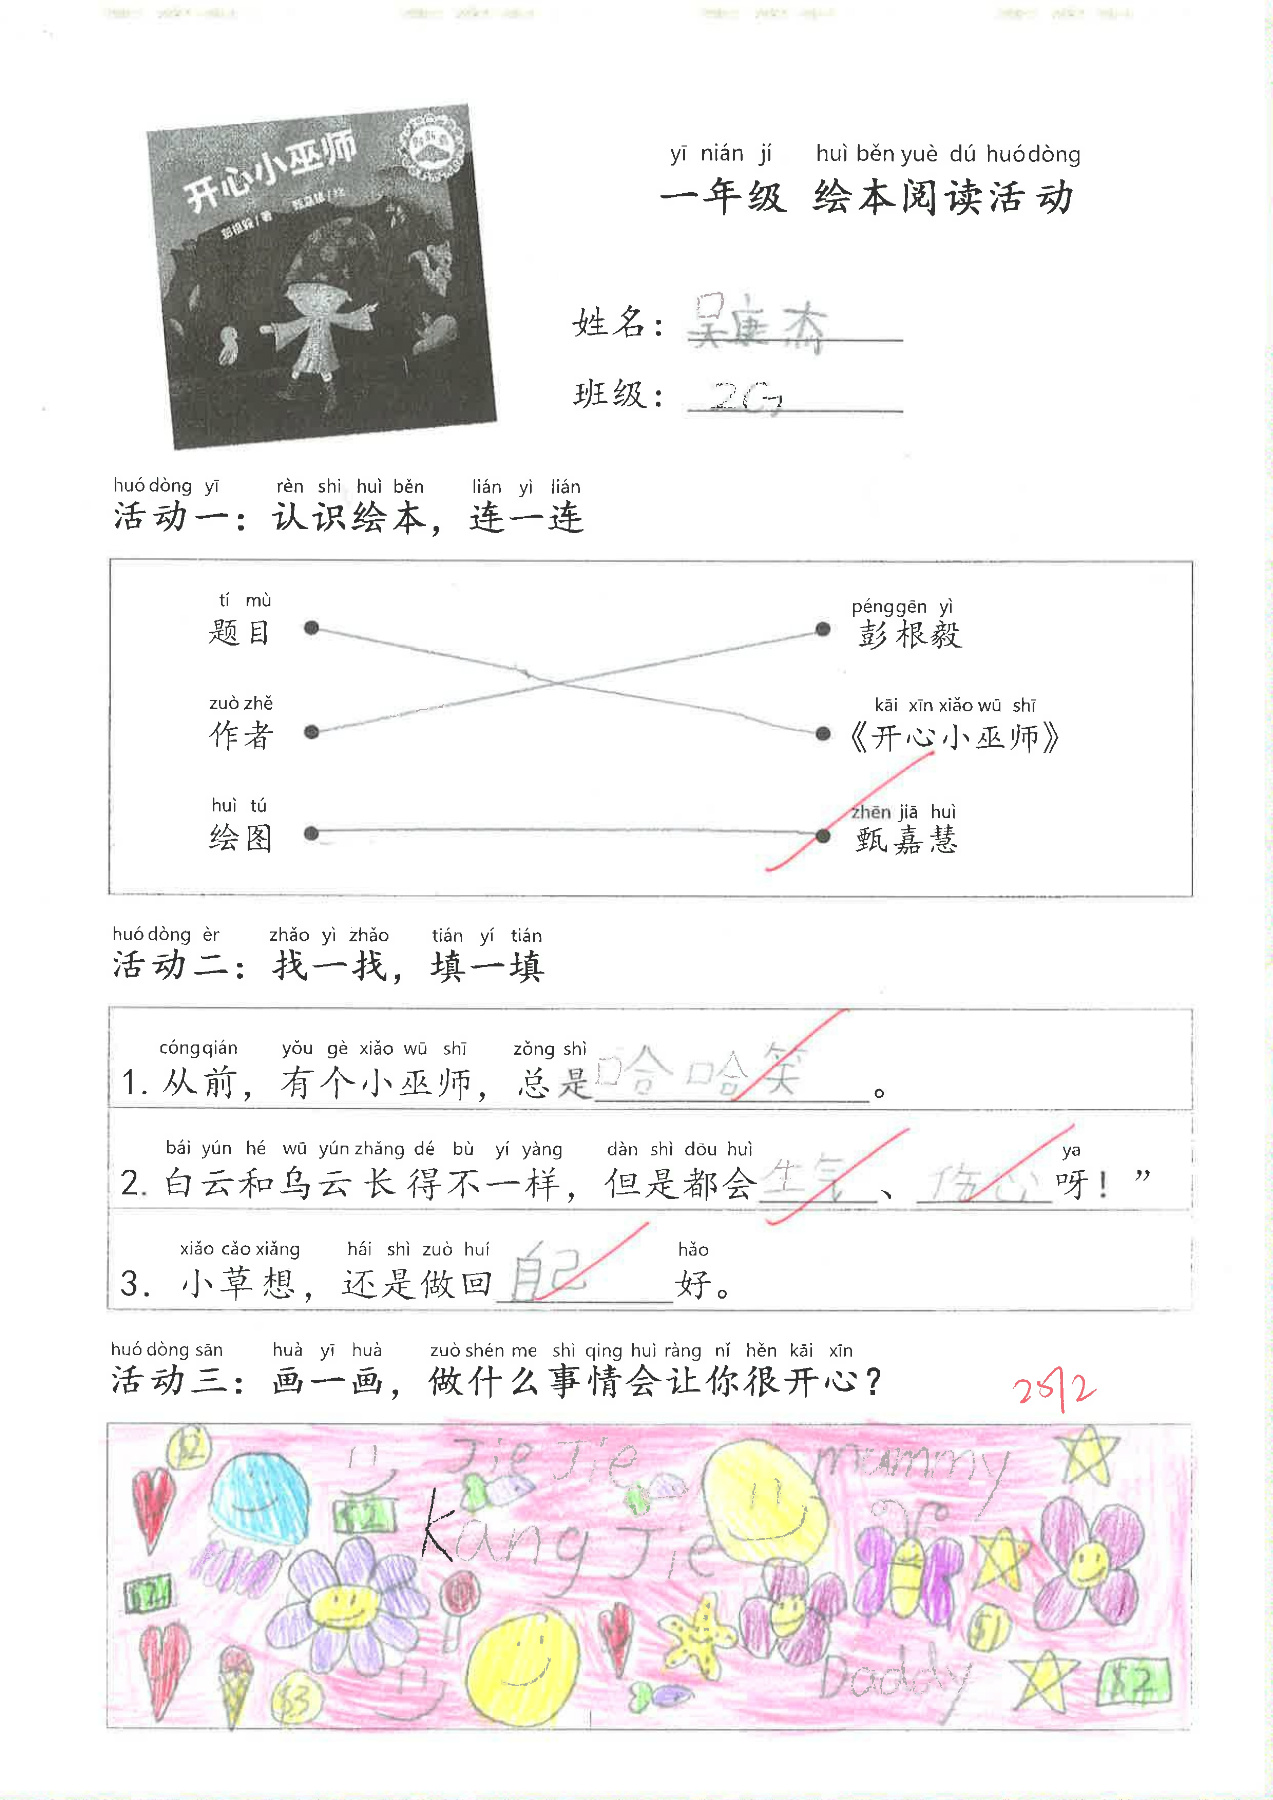 开心小巫师
彭根毅/著 甄嘉慧/绘
yī nián jí huì běn yuè dú huó dòng
一年级 绘本阅读活动
姓名：吴康杰
班级：2G
huó dòng yī rèn shi huì běn lián yì lián
活动一：认识绘本，连一连
tí mù
题目
pénggēn yì
彭根毅
zuò zhě
作者
kāi xīn xiǎo wū shī
《开心小巫师》
huì tú
绘图
zhēn jiā huì
甄嘉慧
huó dòng èr zhǎo yì zhǎo tián yí tián
活动二：找一找，填一填
cóngqián yǒu gè xiǎo wū shī zǒng shì
1. 从前，有个小巫师，总是哈哈笑。
bái yún hé wū yún zhǎng dé bù yí yàng dàn shì dōu huì ya
2. 白云和乌云长得不一样，但是都会生气、伤心呀！”
xiǎo cǎo xiǎng hái shì zuò huí hǎo
3. 小草想，还是做回自己好。
huó dòng sān huà yī huà zuò shén me shì qing huì ràng nǐ hěn kāi xīn
活动三：画一画，做什么事情会让你很开心？
25/2
$2 Jie Jie mummy
$2 Kang Jie
$2 $1
Daddy
$3 $2